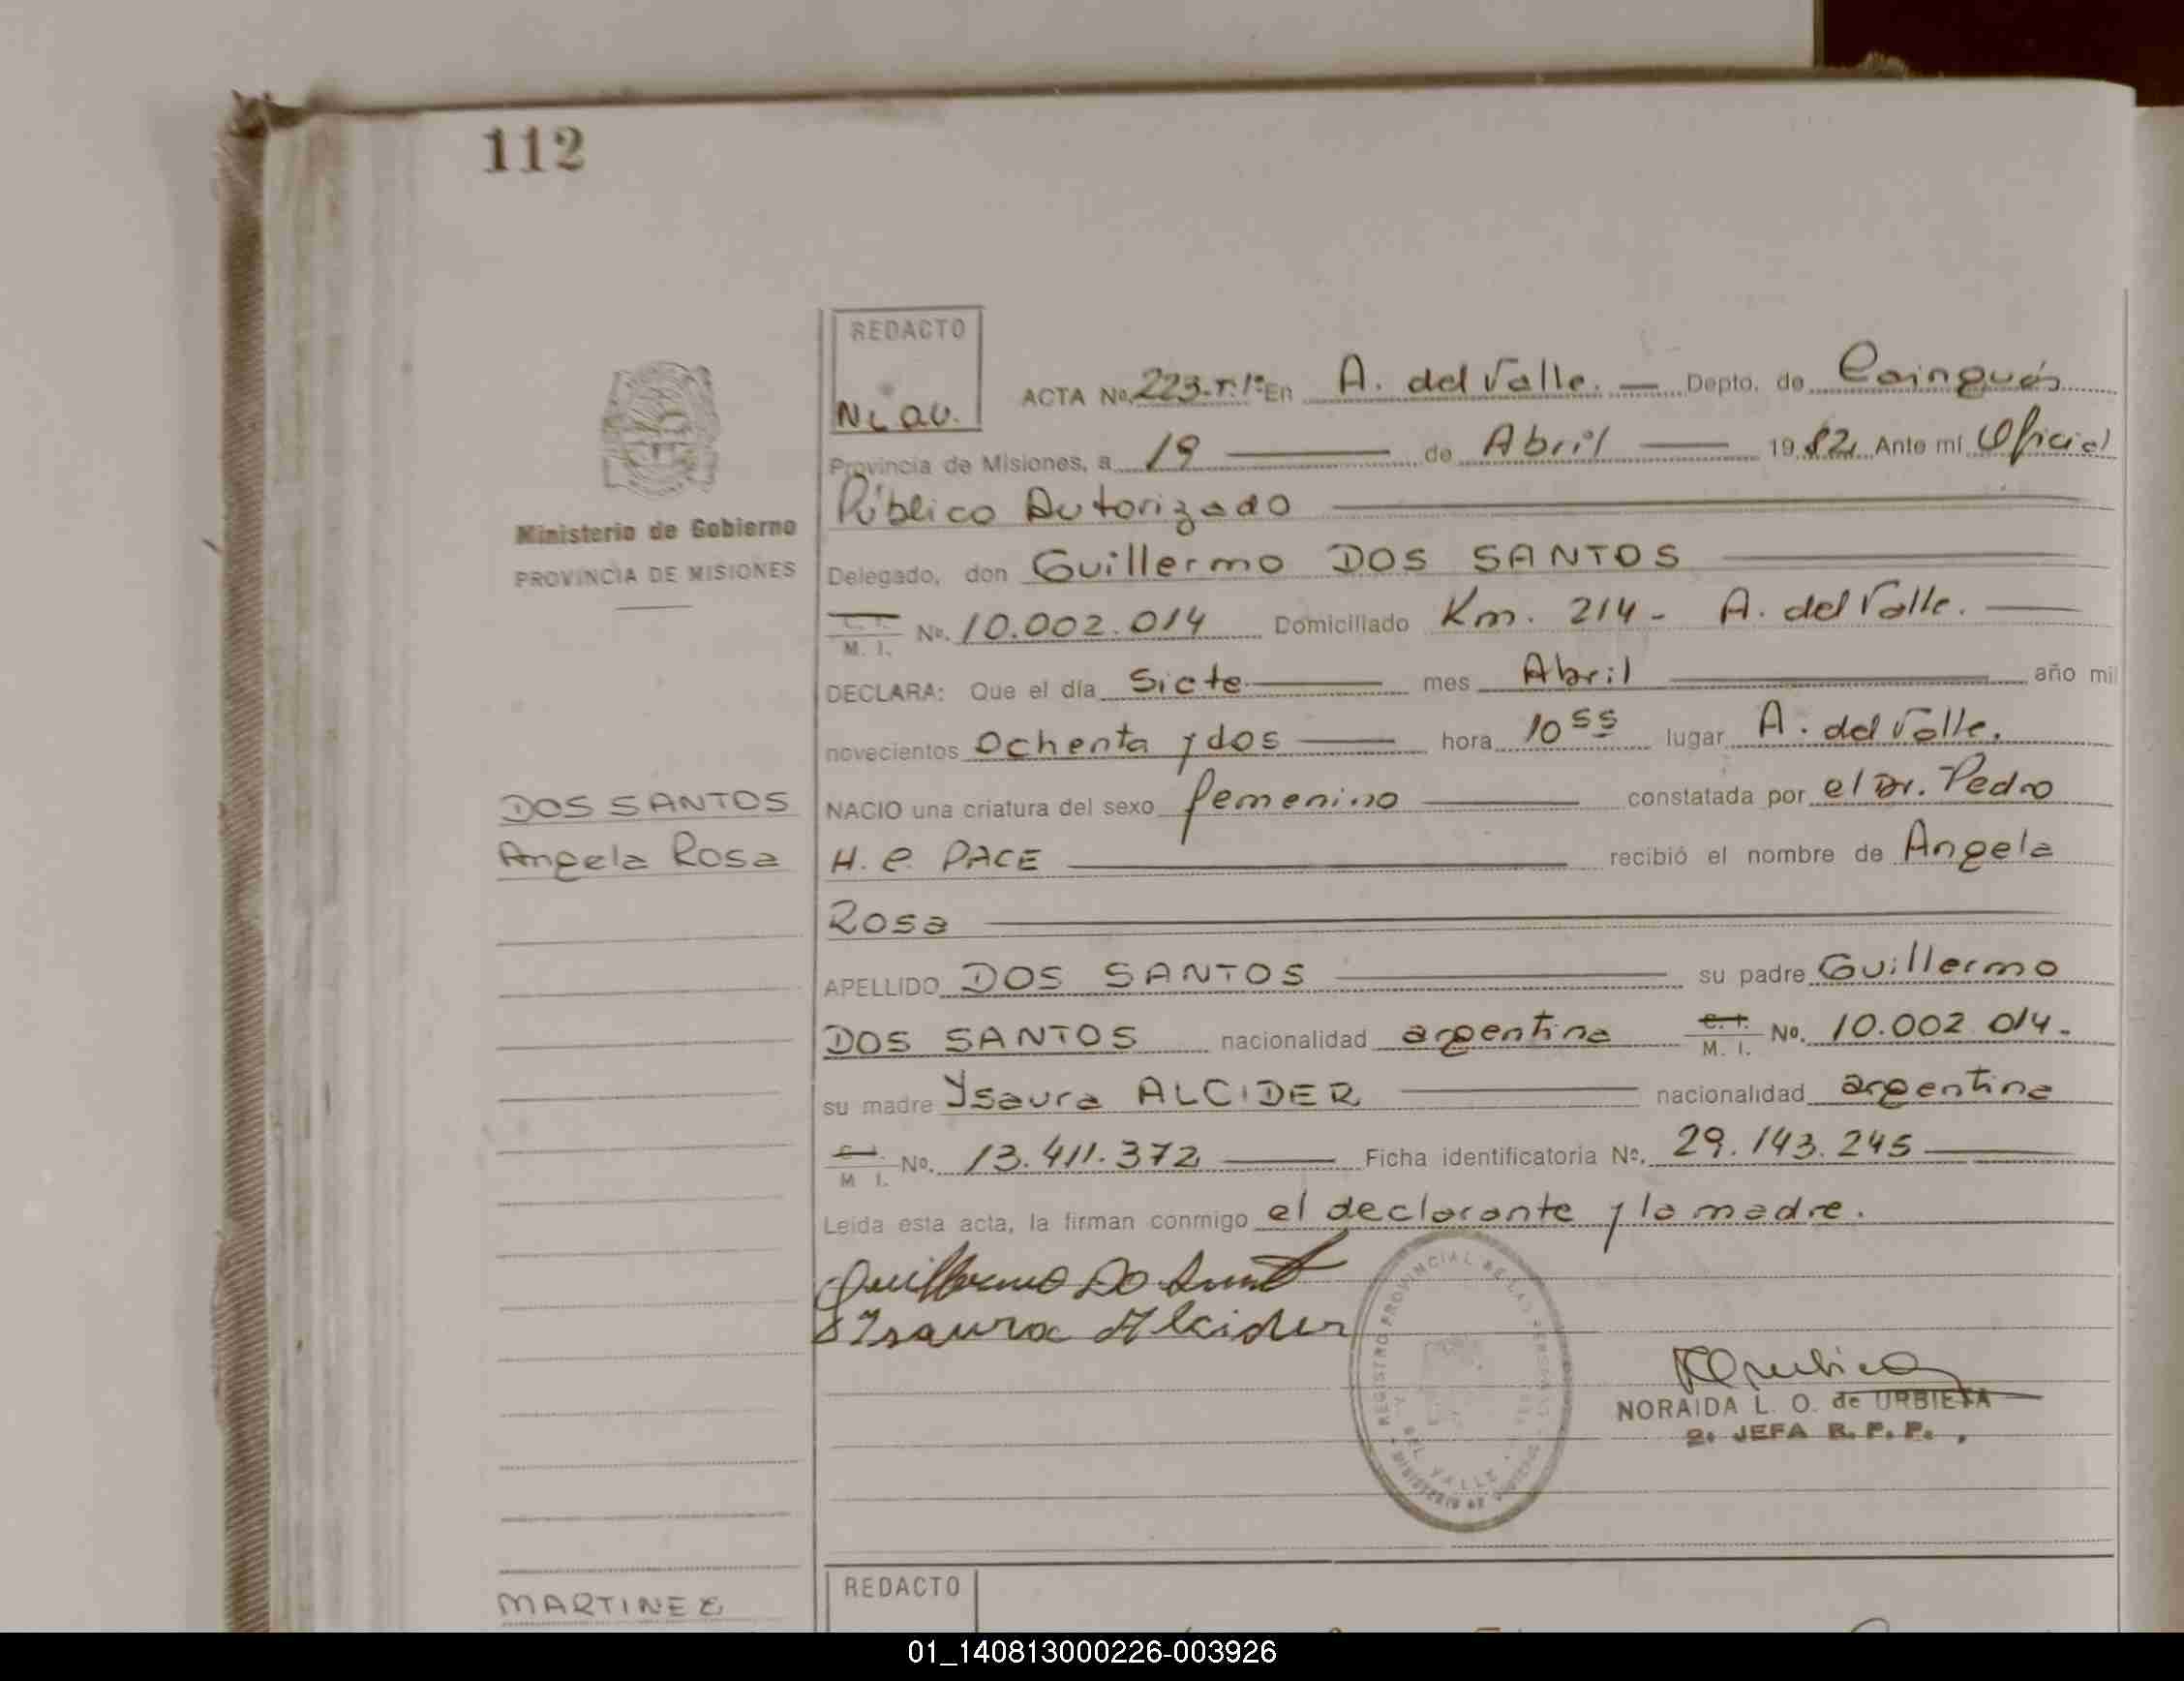 112
REDACTO
ACTA No. 223.T.1º En A. del Valle. Depto. de Cainguás
Provincia de Misiones, a 19 de Abril 1982 Ante mí Oficial
Público Autorizado
Ministerio de Gobierno
PROVINCIA DE MISIONES
Delegado, don Guillermo DOS SANTOS
M. I. No. 10.002.014 Domiciliado Km. 214 - A. del Valle.
DECLARA: Que el día Siete mes Abril año mil
novecientos Ochenta y dos hora 10 55 lugar A. del Valle.
DOS SANTOS
Angela Rosa
NACIO una criatura del sexo femenino constatada por el Dr. Pedro
H. C. PACE recibió el nombre de Angela
Rosa
APELLIDO DOS SANTOS su padre Guillermo
DOS SANTOS nacionalidad argentina C. I. M. I. No. 10.002.014.
su madre Ysaura ALCIDER nacionalidad argentina
M I. No. 13.411.372 Ficha identificatoria No. 29.143.245
Leida esta acta, la firman conmigo el declarante y la madre.
Guillermo Do Sant
Isaura Alcider
REGISTRO PROVINCIAL DE LAS PERSONAS
DEL VALLE
MINISTERIO DE GOBIERNO
NORAIDA L. O. de URBIETA
2. JEFA R. P. P.
MARTINEZ
REDACTO
01_140813000226-003926